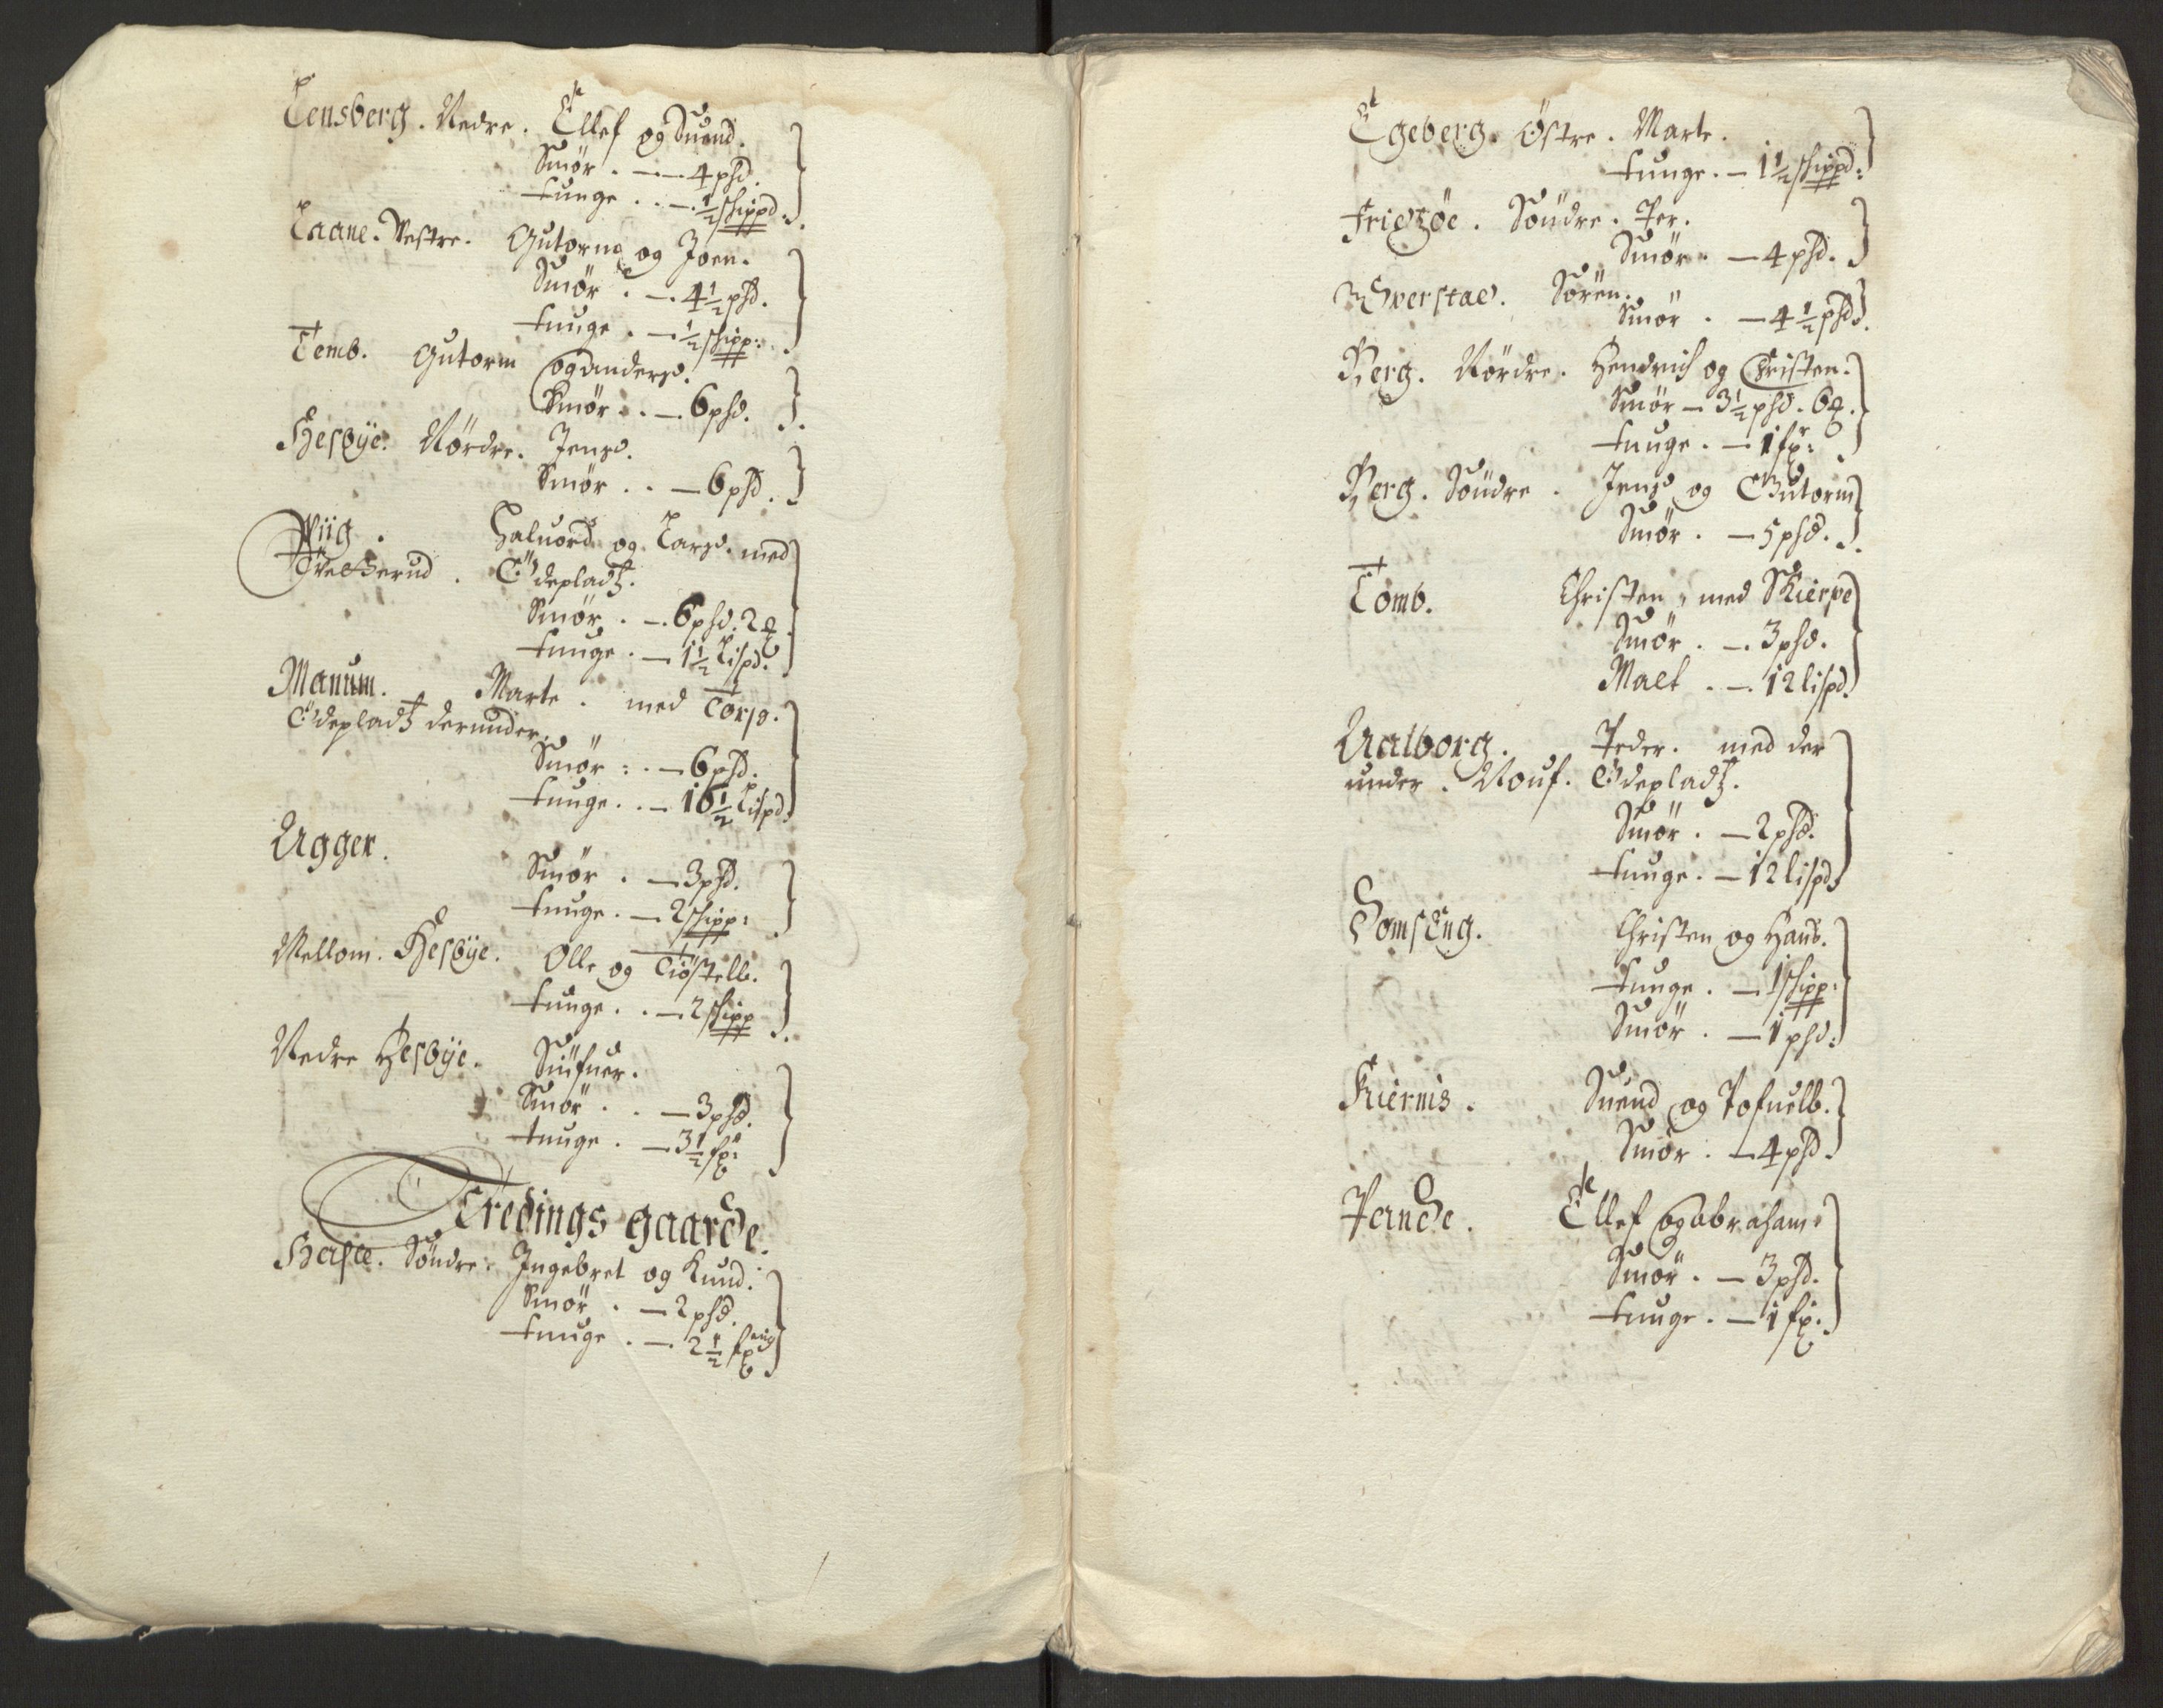 Lensberg. Nedre. Ellef og Suend.
Smör. — 4 phd.
tunge. . — ½ schippd:
Laane. Vestre. Gutorm og Joen.
Smör. — 4½ phd.
tunge. — ½ schipp:
Temb. Gutorm og anders.
Smör. . — 6 phd.
Hesbÿe. Nördre. Jens.
Smör. . — 6 phd.
Wiig. Haluord og Lars. med
Ödepladtz.
Smör. — 6 phd. 2
tunge. — 1½ Lispd.
Manum. Marte. med Torp.
Ödepladtz derunder.
Smör: . — 6 phd.
tunge. . — 16½ Lispd.
Agger.
Smör. — 3 phd.
tunge. — 2 schipp:
Mellom. Hesbÿe. Olle og Tiöstelb.
tunge. . — 2 schipp
Nedre Hesbÿe.
Smör. . — 3 phd.
tunge. — 3½
Tredings gaarde.
Söndre. Ingebret og Knud.
Smör. — 2 phd.
tunge. — 2½
Egeberg. Östre. Marte.
tunge. — 1½ schippd:
Friedzöe. Söndre. Per.
Smör. — 4 phd.
Sören.
Smör. — 4½ phd.
Berg. Nördre. Hendrich og Christen.
Smör — 3½ phd. 6
tunge. — 1
Berg. Söndre. Jens og Gutorm
Smör. — 5 phd.
Tomb. Christen, med Skierpe
Smör. — 3 phd.
Malt. — 12 lispd.
Aalborg. Peder. med der
under. Ödepladtz.
Smör. — 2 phd.
tunge. — 12 lispd.
SomsEng. Christen og Hans.
tunge. — 1 schipp:
Smör. — 1 phd:
Kiernis. Suend og Pofuelb.
Smör. — 4 phd.
Pande. Ellef og abraham.
Smör. — 3 phd.
tunge. — 1